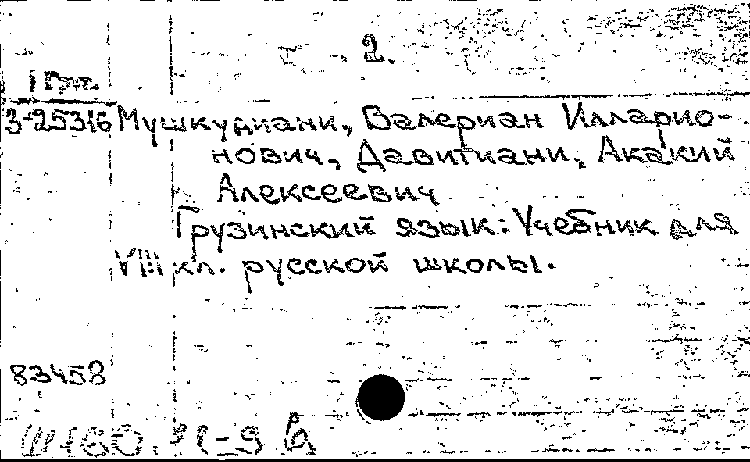 2.
1 Груз.
3-25316 Мушкудиани, Валериан Илларио-
нович, Давитиани, Акакий
Алексеевич
Грузинский язык: Учебник для
VIII кл. русской школы.
83458